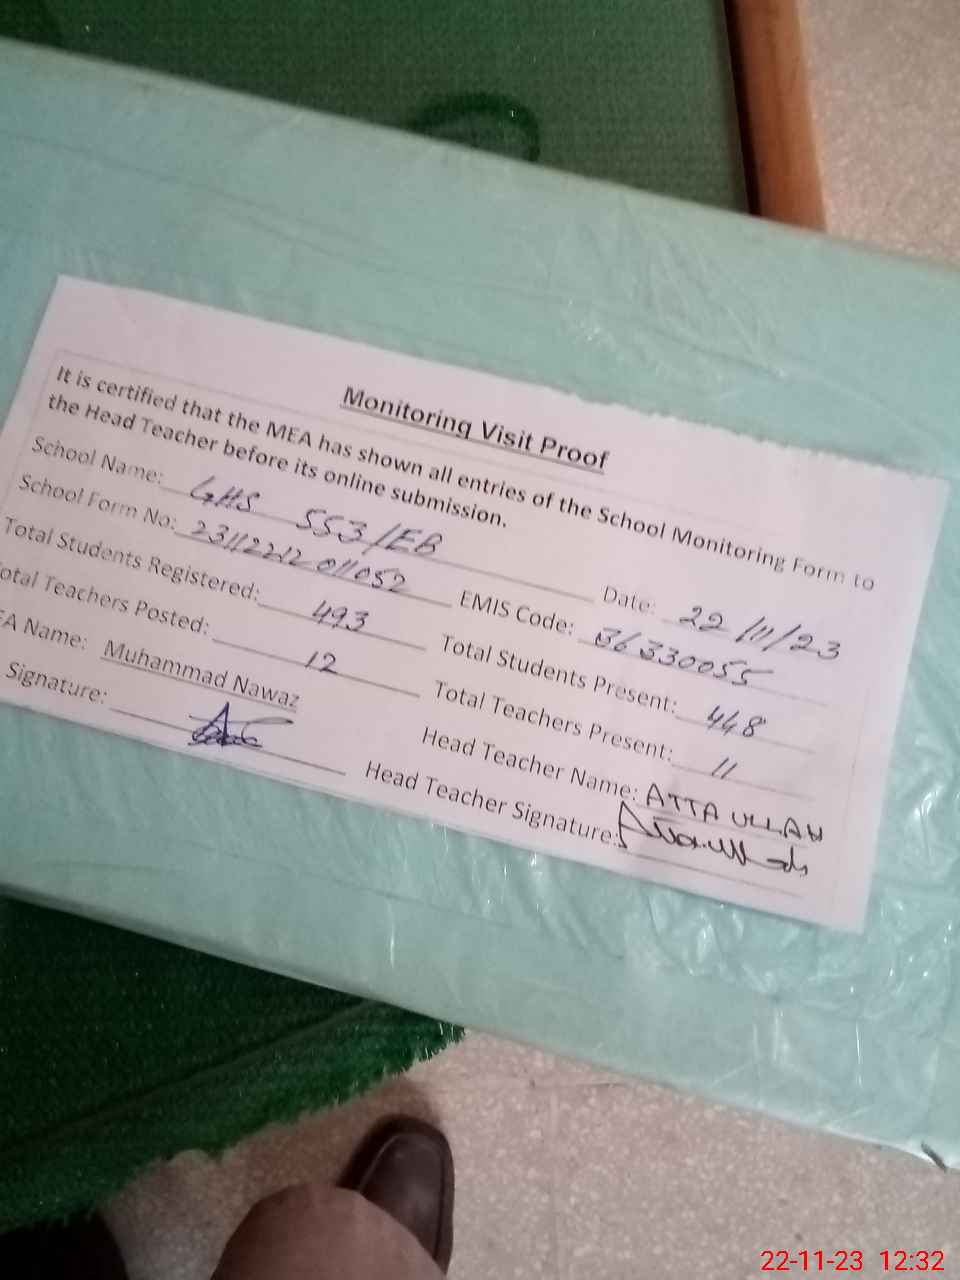 Monitoring Visit Proof
It is certified that the MEA has shown all entries of the School Monitoring Form to
the Head Teacher before its online submission.
School Name: GHS 553/EB Date: 22/11/23
School Form No: 23112212011052 EMIS Code: 36330055
Total Students Registered: 493 Total Students Present: 448
otal Teachers Posted: 12 Total Teachers Present: 11
EA Name: Muhammad Nawaz Head Teacher Name: ATTA ULLAH
Signature: Head Teacher Signature:
22-11-23 12:32